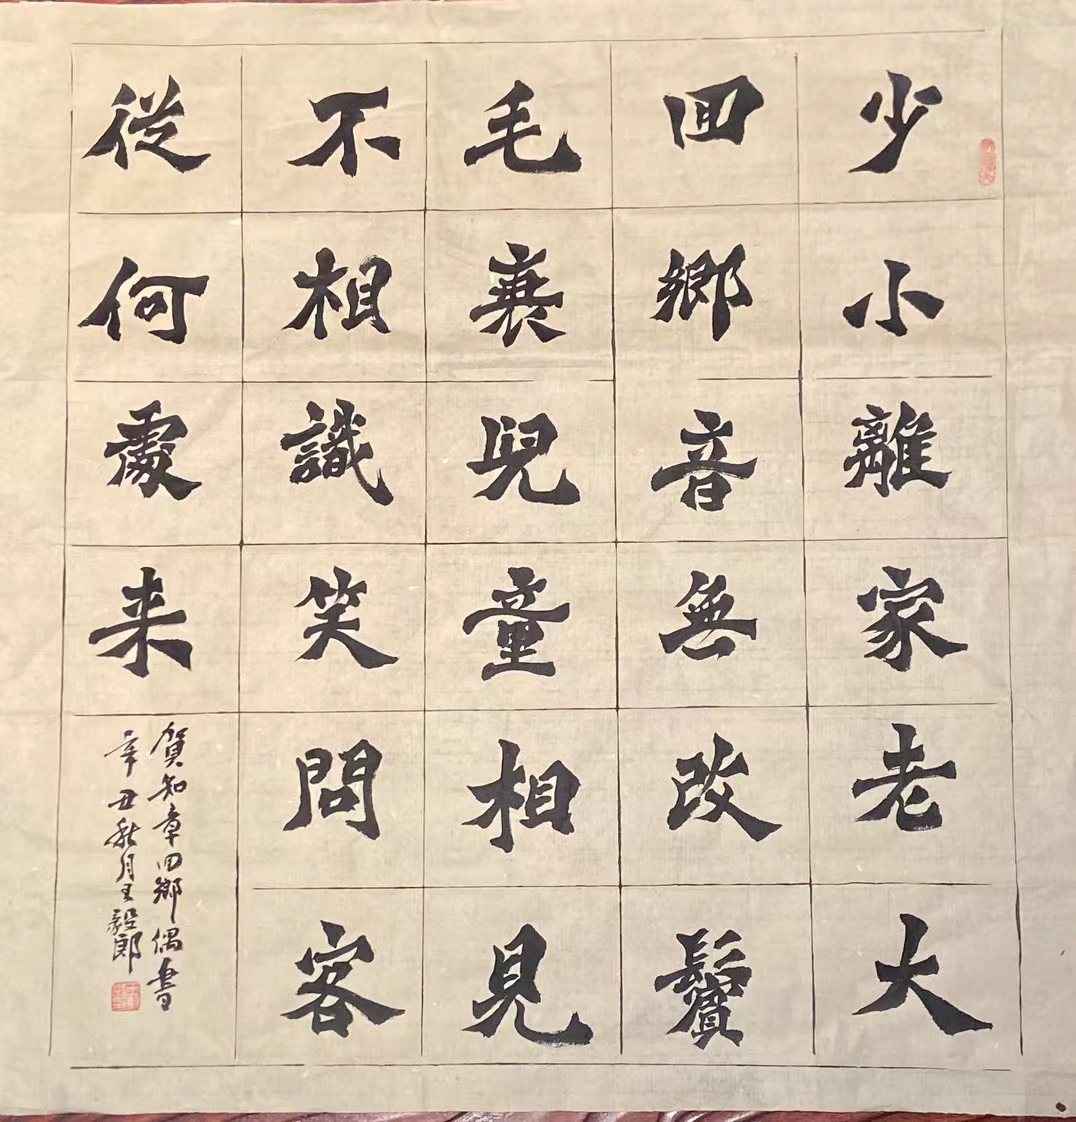 少小離家老大
囬鄉音無改鬢
毛衰兒童相見
不相識笑問客
從何處来
賀知章囬鄉偶書
辛丑秋月王毅郎